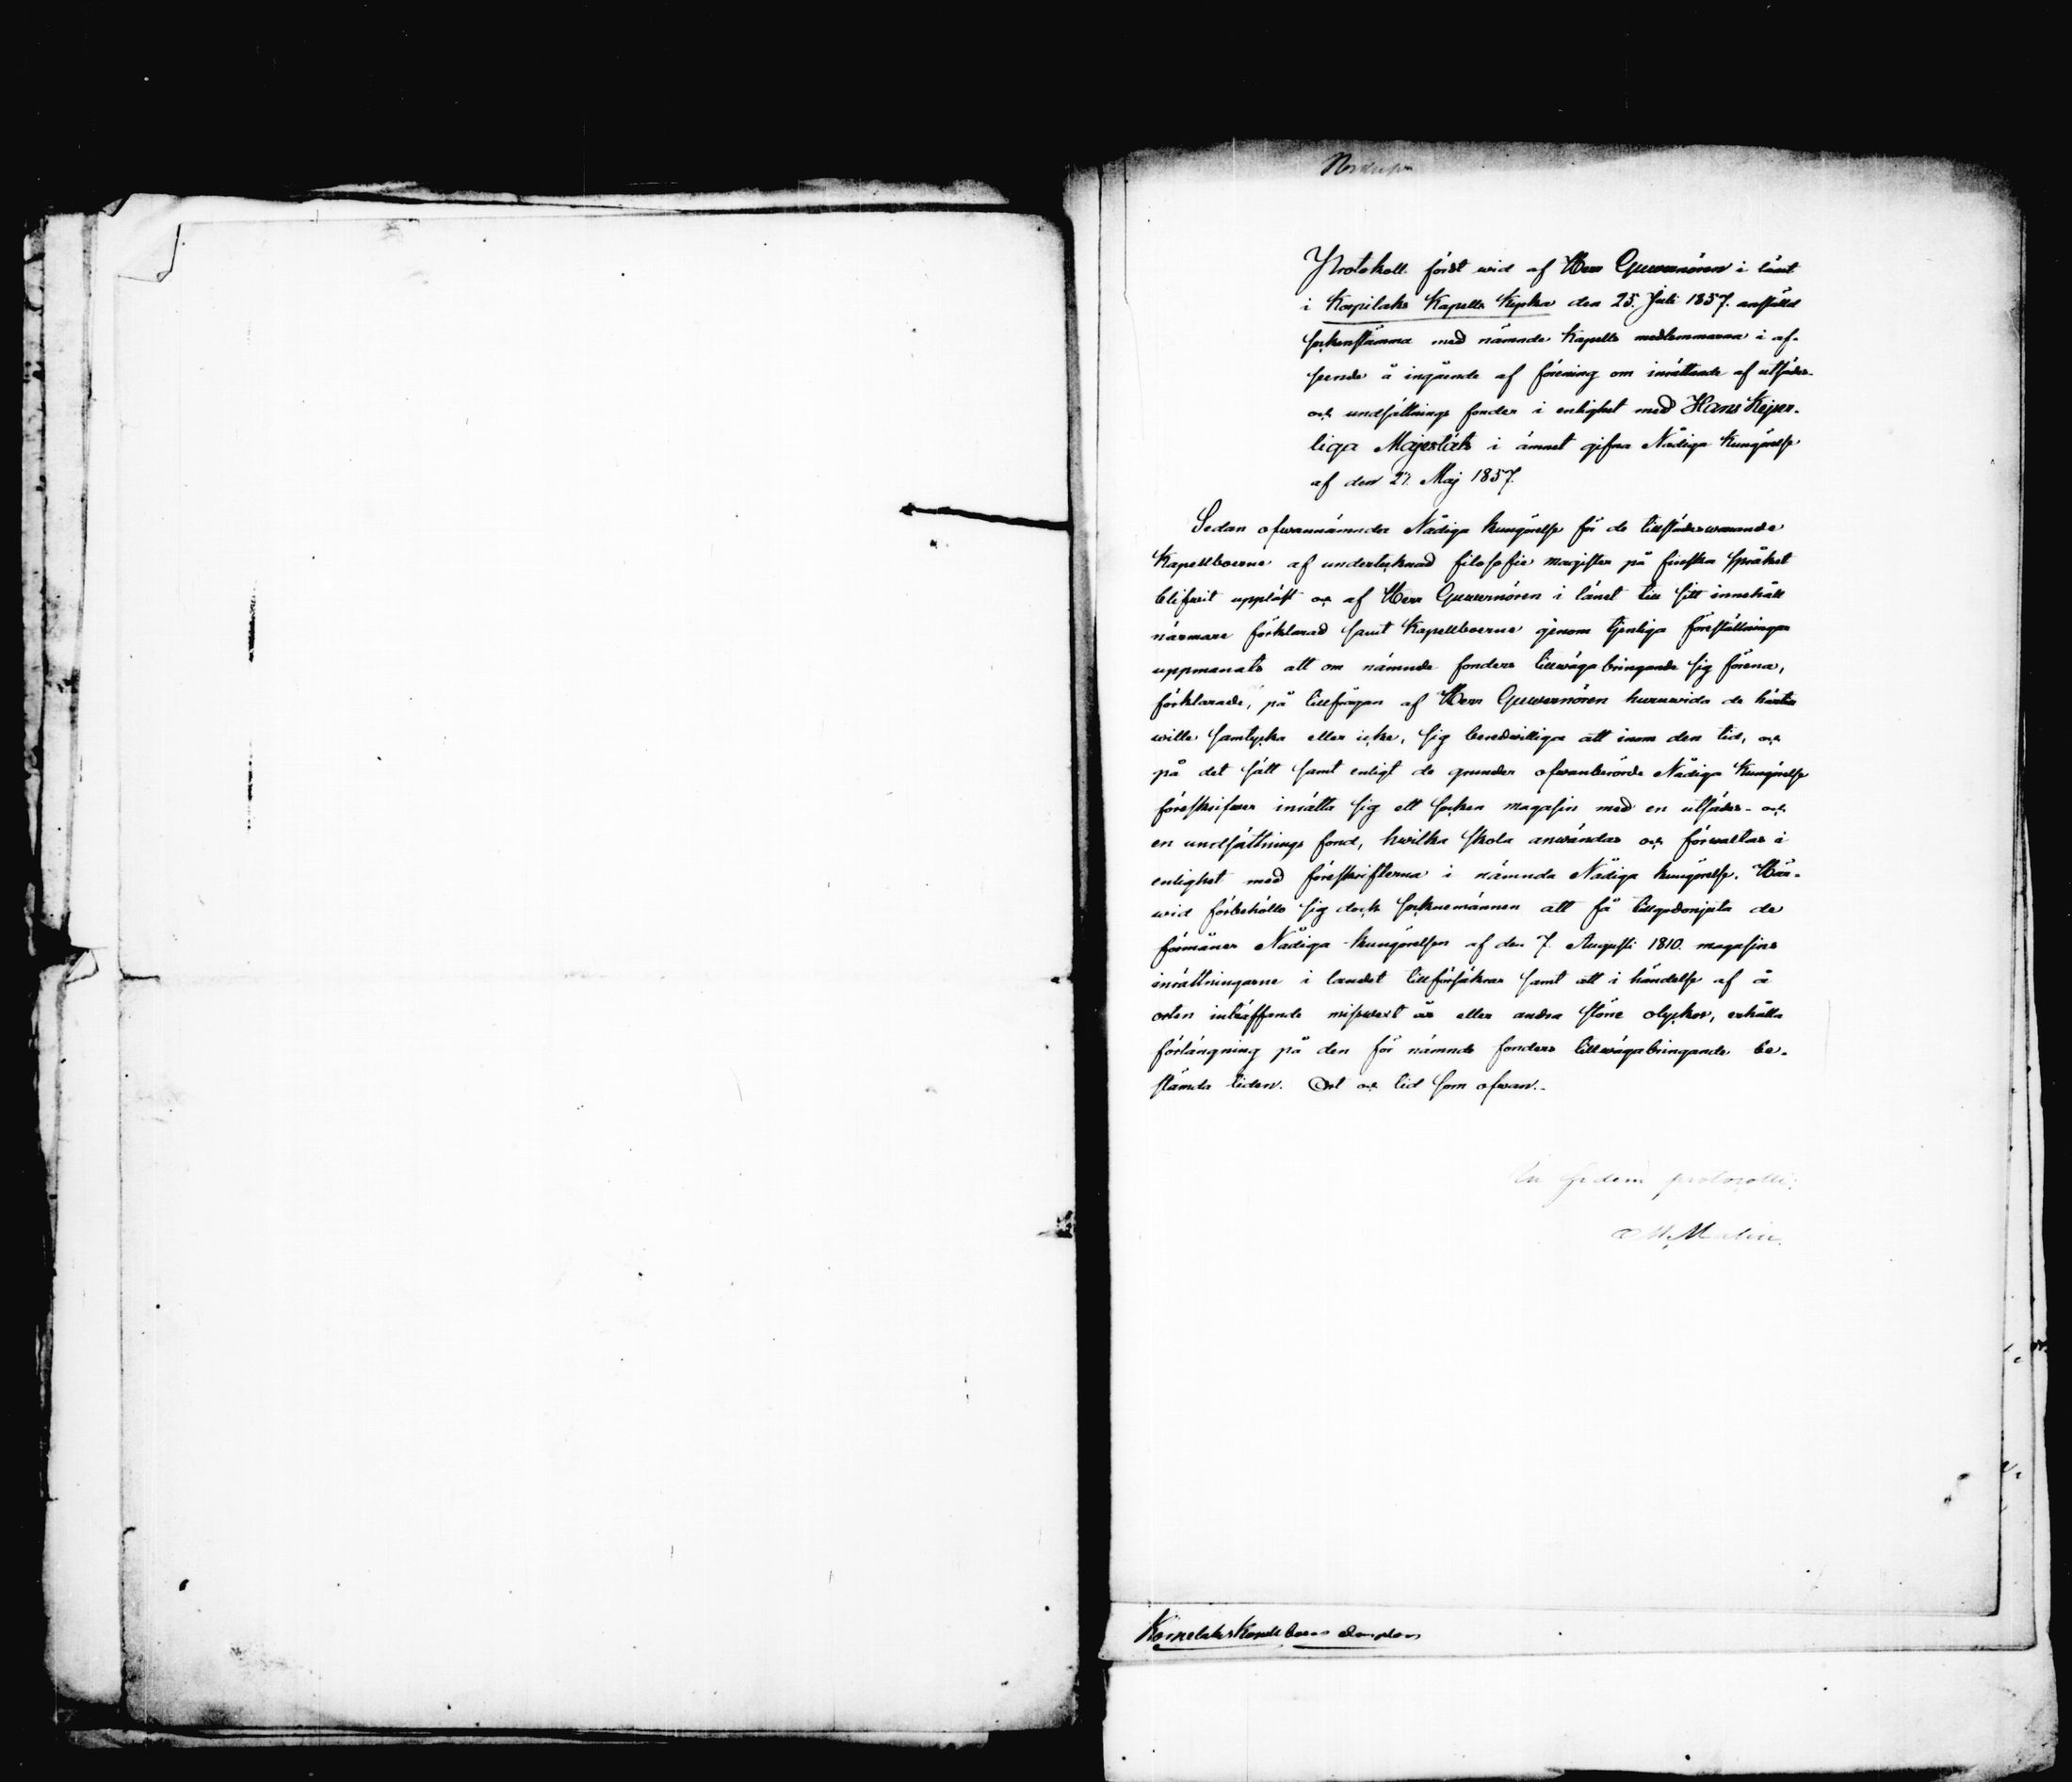 Protokoll fördt wid af Herr Guvernören i länet
i Korpilaks Kapells Kyrka den 25. Juli 1857. anstäld
sockenstämma med nämnde Kapells medlemmarna i af-
seende å ingående af förening om inrättande af utsädes-
och undsättnings fonder i enlighet med Hans Kejser-
liga Majestäts i ämnet gifna Nådiga Kungörelse
af den 27. Maj 1857.
Sedan ofwannämnda Nådiga Kungörelse för de tillstädeswarande
Kapellboerne af undertecknad filosofie magister på finska språket
blifwit uppläst och af Herr Guvernören i länet till sitt innehåll
närmare förklarad samt Kapellboerne genom tjenliga föreställningar
uppmanats att om nämnde fonders tillwägabringande sig förena,
förklarade, på tillfrågan af Herr Guvernören huruwida de härtill
wille samtycka eller icke, sig beredwilliga att inom den tid, och
på det sätt samt enligt de grunder ofwanberörde Nådiga Kungörelse
föreskrifwer inrätta sig ett socken magasin med en utsädes- och
en undsättnings fond, hwilka skola användas och förwaltas i
enlighet med föreskrifterna i nämnda Nådiga Kungörelse. Här-
wid förbehöllo sig dock socknemännen att få tillgodonjuta de
förmåner Nådiga Kungörelsen af den 7. Augusti 1810. magasins
inrättningarne i landet tillförsäkrar samt att i händelse af å
orten inträffande misswext år eller andra större olyckor, erhålla
förlängning på den för nämnde fonders tillwägabringande be-
stämda tiden. Ort och tid som ofwan.-
In fidem protocolli:
Malin.
Korpilaks Kapellboers